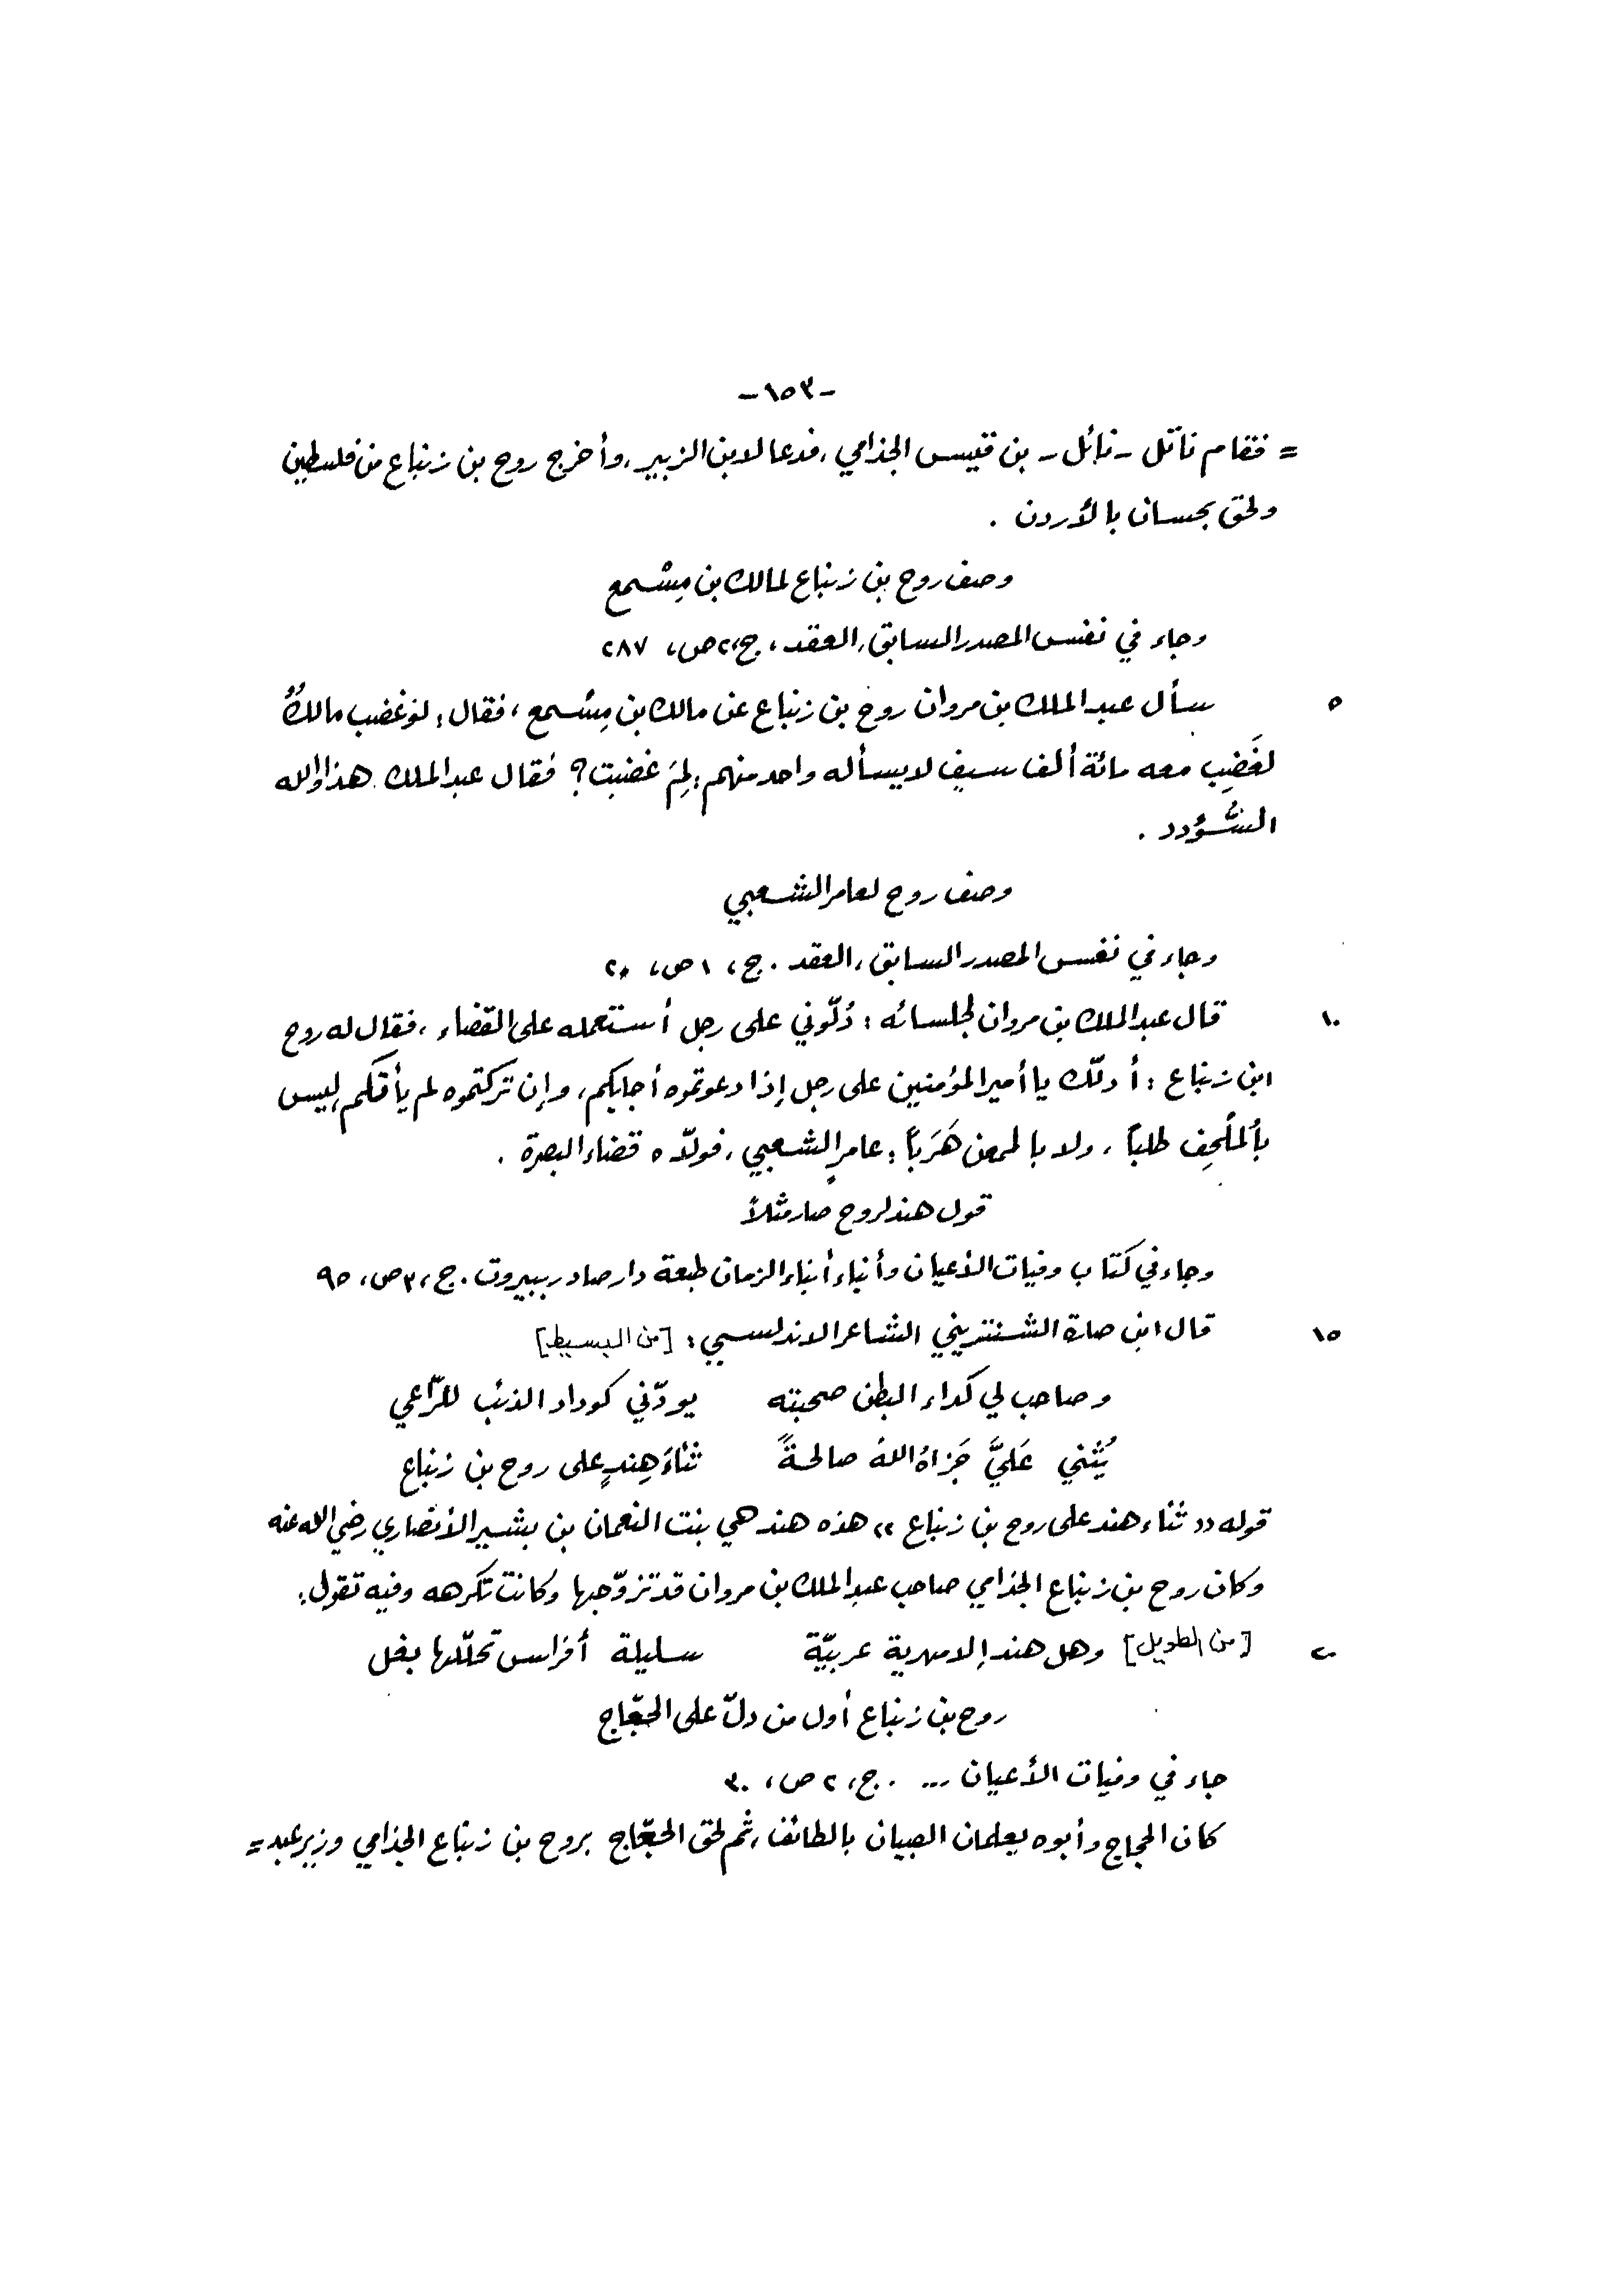 -١٥٣-
= فقام ناتل - نابل - بن قيس الجذامي، فدعا لابن الزبير، وأخرج روح بن زنباع من فلسطين
ولحق بحسان بالأردن .
وصف روح بن زنباع لمالك بن مِسْمع
وجاء في نفس المصدر السابق، العقد، ج، ٢ ص، ٢٨٧
٥ سأل عبد الملك بن مروان روح بن زنباع عن مالك بن مِسْمع، فقال: لو غضب مالكٌ
لغَضِب معه مائة ألف سيفٍ لا يسأله واحد منهم: لِمَ غضبت؟ فقال عبد الملك هذا والله
السُّؤدد .
وصف روح لعامر الشعبي
وجاء في نفس المصدر السابق، العقد . ج، ١ ص، ٢٠
١٠ قال عبد الملك بن مروان لجلسائه: دُلّوني على رجل أستعمله على القضاء، فقال له روح
ابن زنباع: أدلّك يا أمير المؤمنين على رجل إذا دعوتموه أجابكم، وإن تركتموه لم يأتكم ليس
بالمُلْحِف طلباً، ولا بالممعن هَرَباً: عامرٍ الشعبي، فولّاه قضاء البصرة .
قول هند لروح صار مثلاً
وجاء في كتاب وفيات الأعيان وأنباء أبناء الزمان طبعة دار صادر ببيروت . ج، ٣ ص، ٩٥
١٥ قال ابن صارة الشنتريني الشاعر الاندلسي: [من البسيط]
وصاحب لي كداء البطن صحبته يودّني كوداد الذئب للرّاعي
يُثْني عَليَّ جَزاهُ اللهُ صالحةً ثناءَ هِندٍ على روح بن زنباع
قوله «ثناء هند على روح بن زنباع» هذه هند هي بنت النعمان بن بشير الأنصاري رضي الله عنه
وكان روح بن زنباع الجذامي صاحب عبد الملك بن مروان قد تزوّجها وكانت تكرهه وفيه تقول:
٢٠ [من الطويل] وهل هند إلا مهرية عربيّة سليلة أفراس تحلّلها بغل
روح بن زنباع أول من دلّ على الحجّاج
جاء في وفيات الأعيان ... . ج، ٢ ص، ٣٠
كان الحجاج وأبوه يعلمان الصبيان بالطائف، ثم لحق الحجّاج بروح بن زنباع الجذامي وزير عبد =